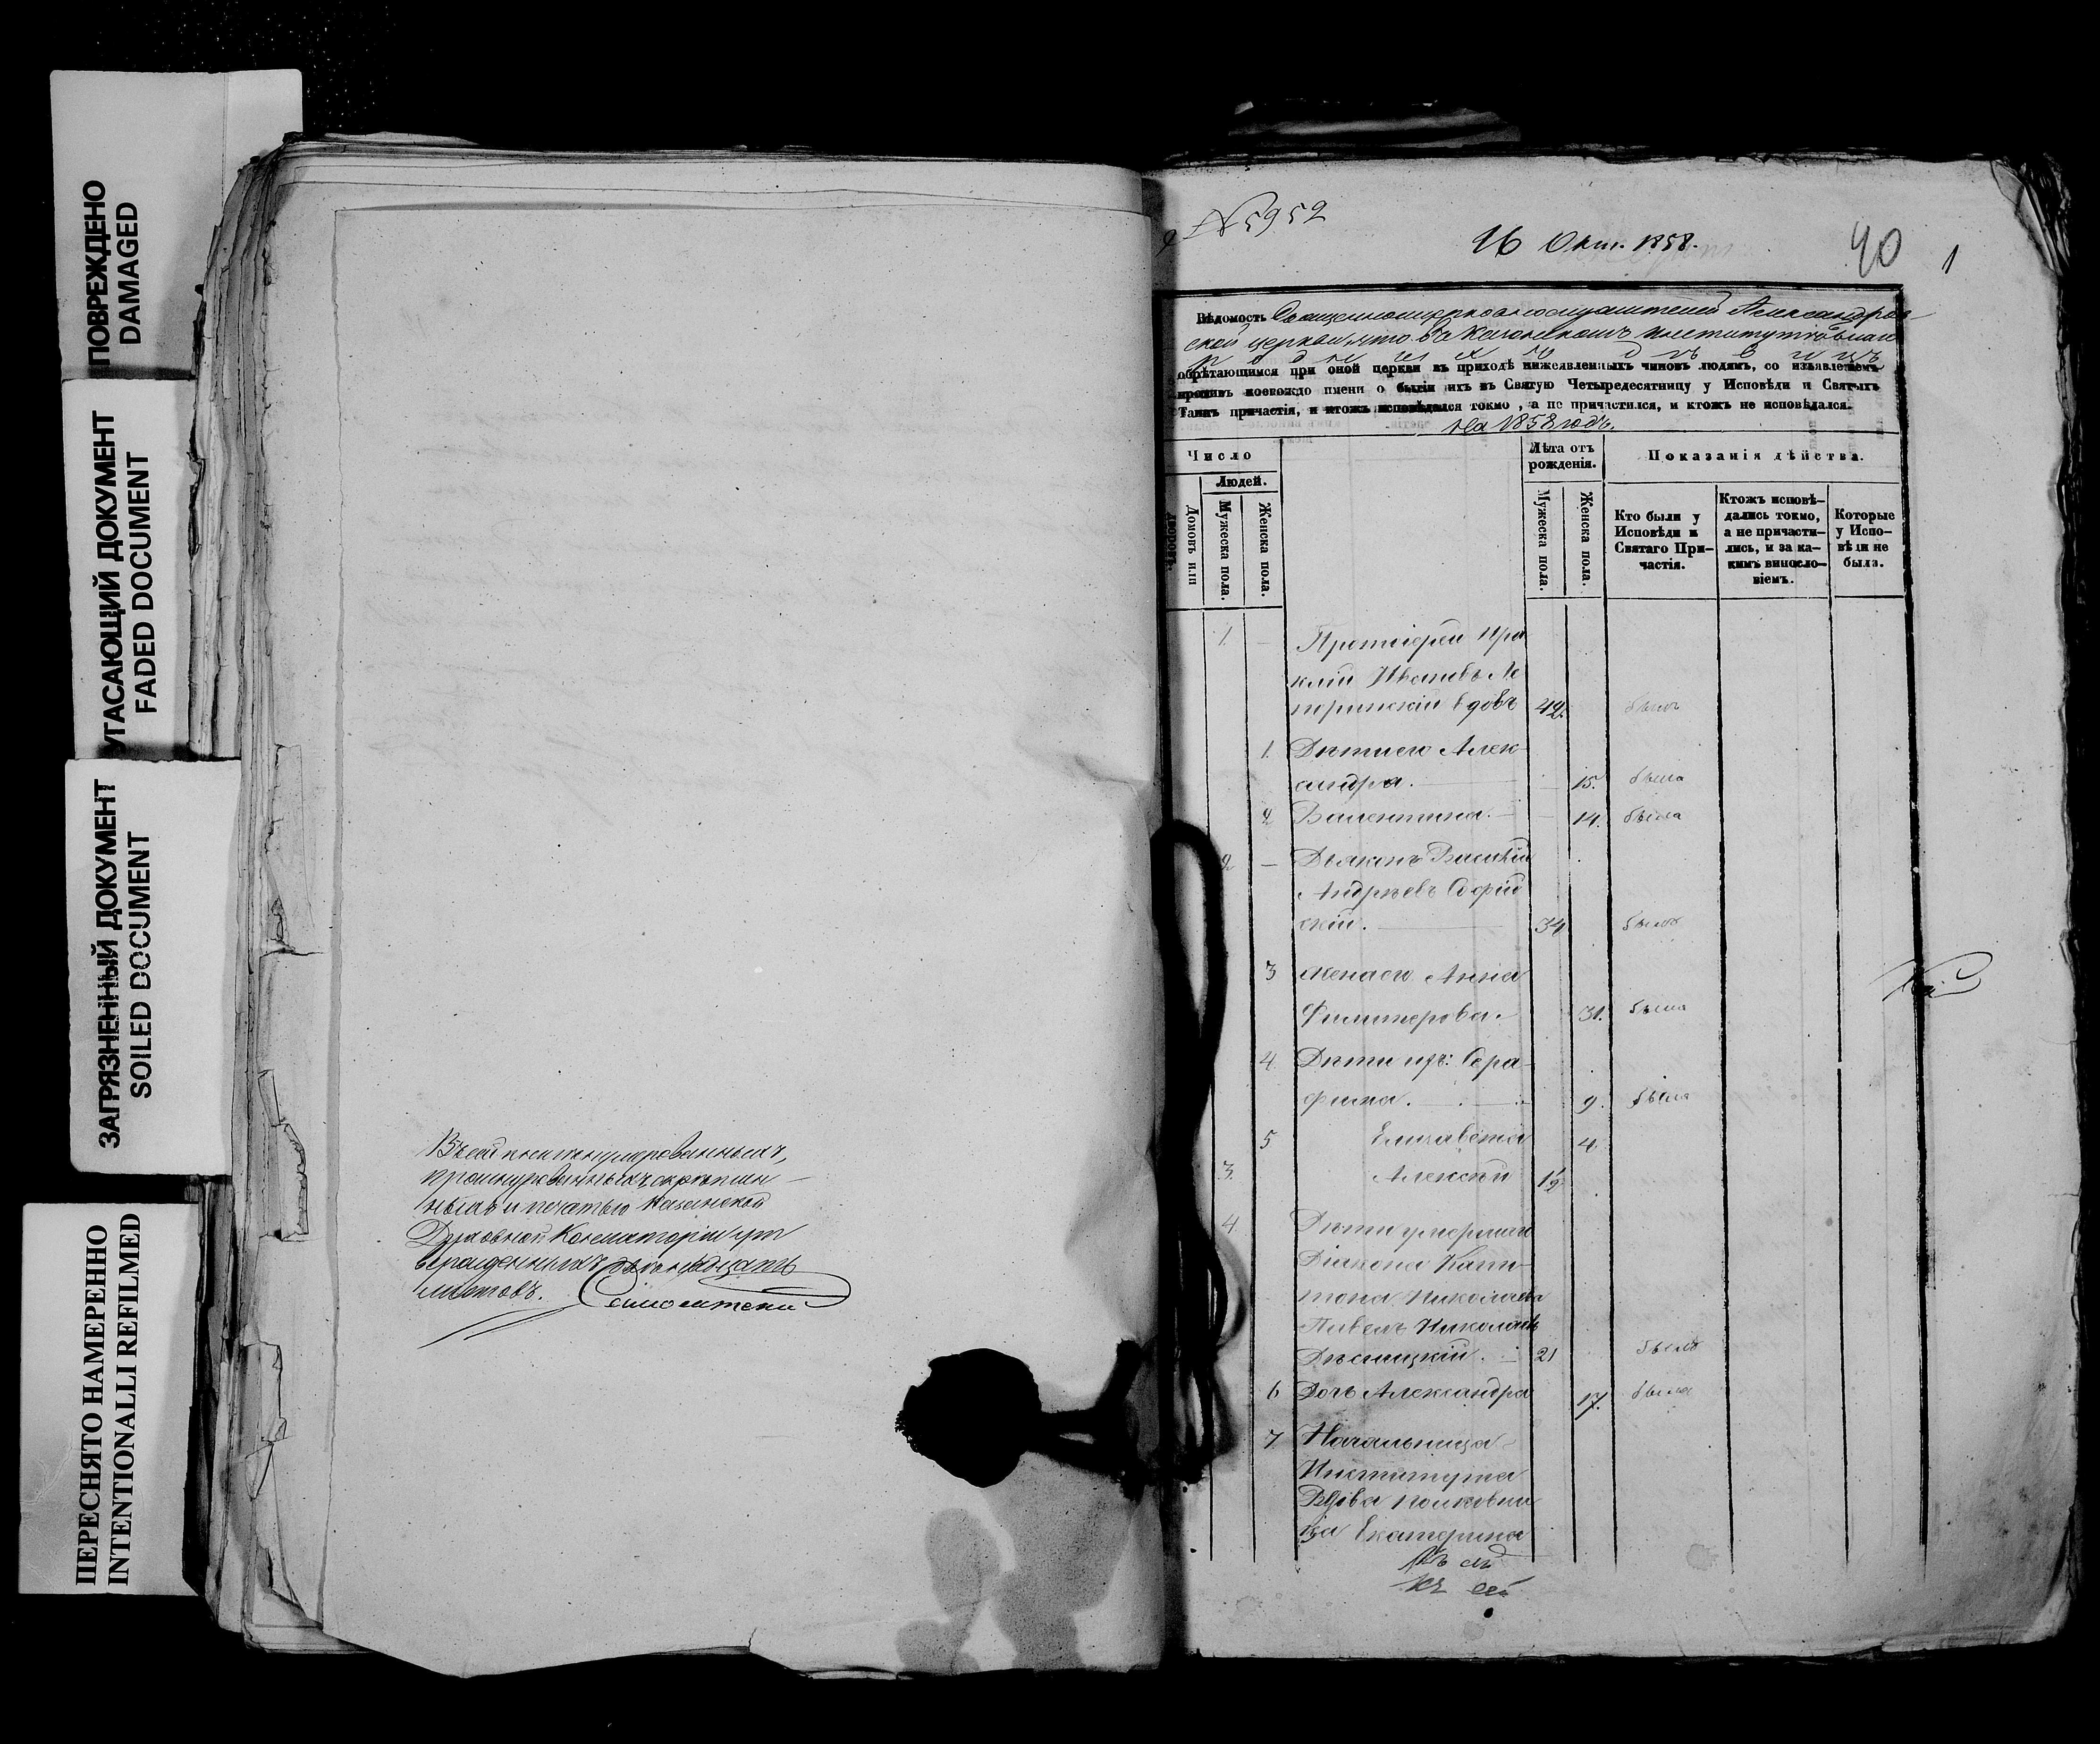 ПОВРЕЖДЕНО
DAMAGED
УГАСАЮЩИЙ ДОКУМЕНТ
FADED DOCUMENT
ЗАГРЯЗНЕННЫЙ ДОКУМЕНТ
SOILED DOCUMENT
ПЕРЕСНЯТО НАМЕРЕННО
INTENTIONALLI REFILMED
Въ сей книге нумерованныхъ,
прошнурованныхъ, скреплен-
ныхъ и печатью Казанской
Духовной Консисторіи ут
вержденныхъ
листовъ.
№ 5952
16 Окт. 1858.
40 1
Вѣдомость Священноцерковнослужителей Александров
ской церкви, что въ Казанскомъ институтѣ благо
р о д н ы х ъ д ѣ в и ц ъ
обрѣтающимся при оной церкви въ приходѣ нижеявленныхъ чиновъ людямъ, со изъявленіемъ
противъ коегождо имени о бытіи ихъ въ Святую Четыредесятницу у Исповѣди и Святыхъ
Таинъ причастія, и ктожъ исповѣдался токмо, а не причастился, и ктожъ не исповѣдался.
на 1858 годъ.
Число
Людей.
Домовъ или дворовъ.
Мужеска пола.
Женска пола.
Лѣта отъ рожденія.
Мужеска пола.
Женска пола.
Показанія дѣйства.
Кто были у Исповѣди и Святаго При-частія.
Ктожъ исповѣ-дались токмо, а не причасти-лись, и за ка-кимъ виносло-віемъ.
Которые у Испо-вѣди не были.
1. — Протоіерей Ира
клій Ивановъ
вдовъ 42. былъ
1. Дѣти его Алек
сандра. 15. была
2 Валентина. 14. была
2 — Дьяконъ Василій
Андреевъ Софій
скій. 34 былъ
3 жена его Анна
31. была
4 Дѣти ихъ: Сера-
фима. 9. была
5 Елизавета 4.
3. Алексѣй 1½
4 Дѣти умершаго
Діакона Капи-
тона Николаева
Павелъ Николаевъ
21 былъ
6 Дочь Александра 17. была
7. Начальница
Института
Вдова полковни
ца Екатерина